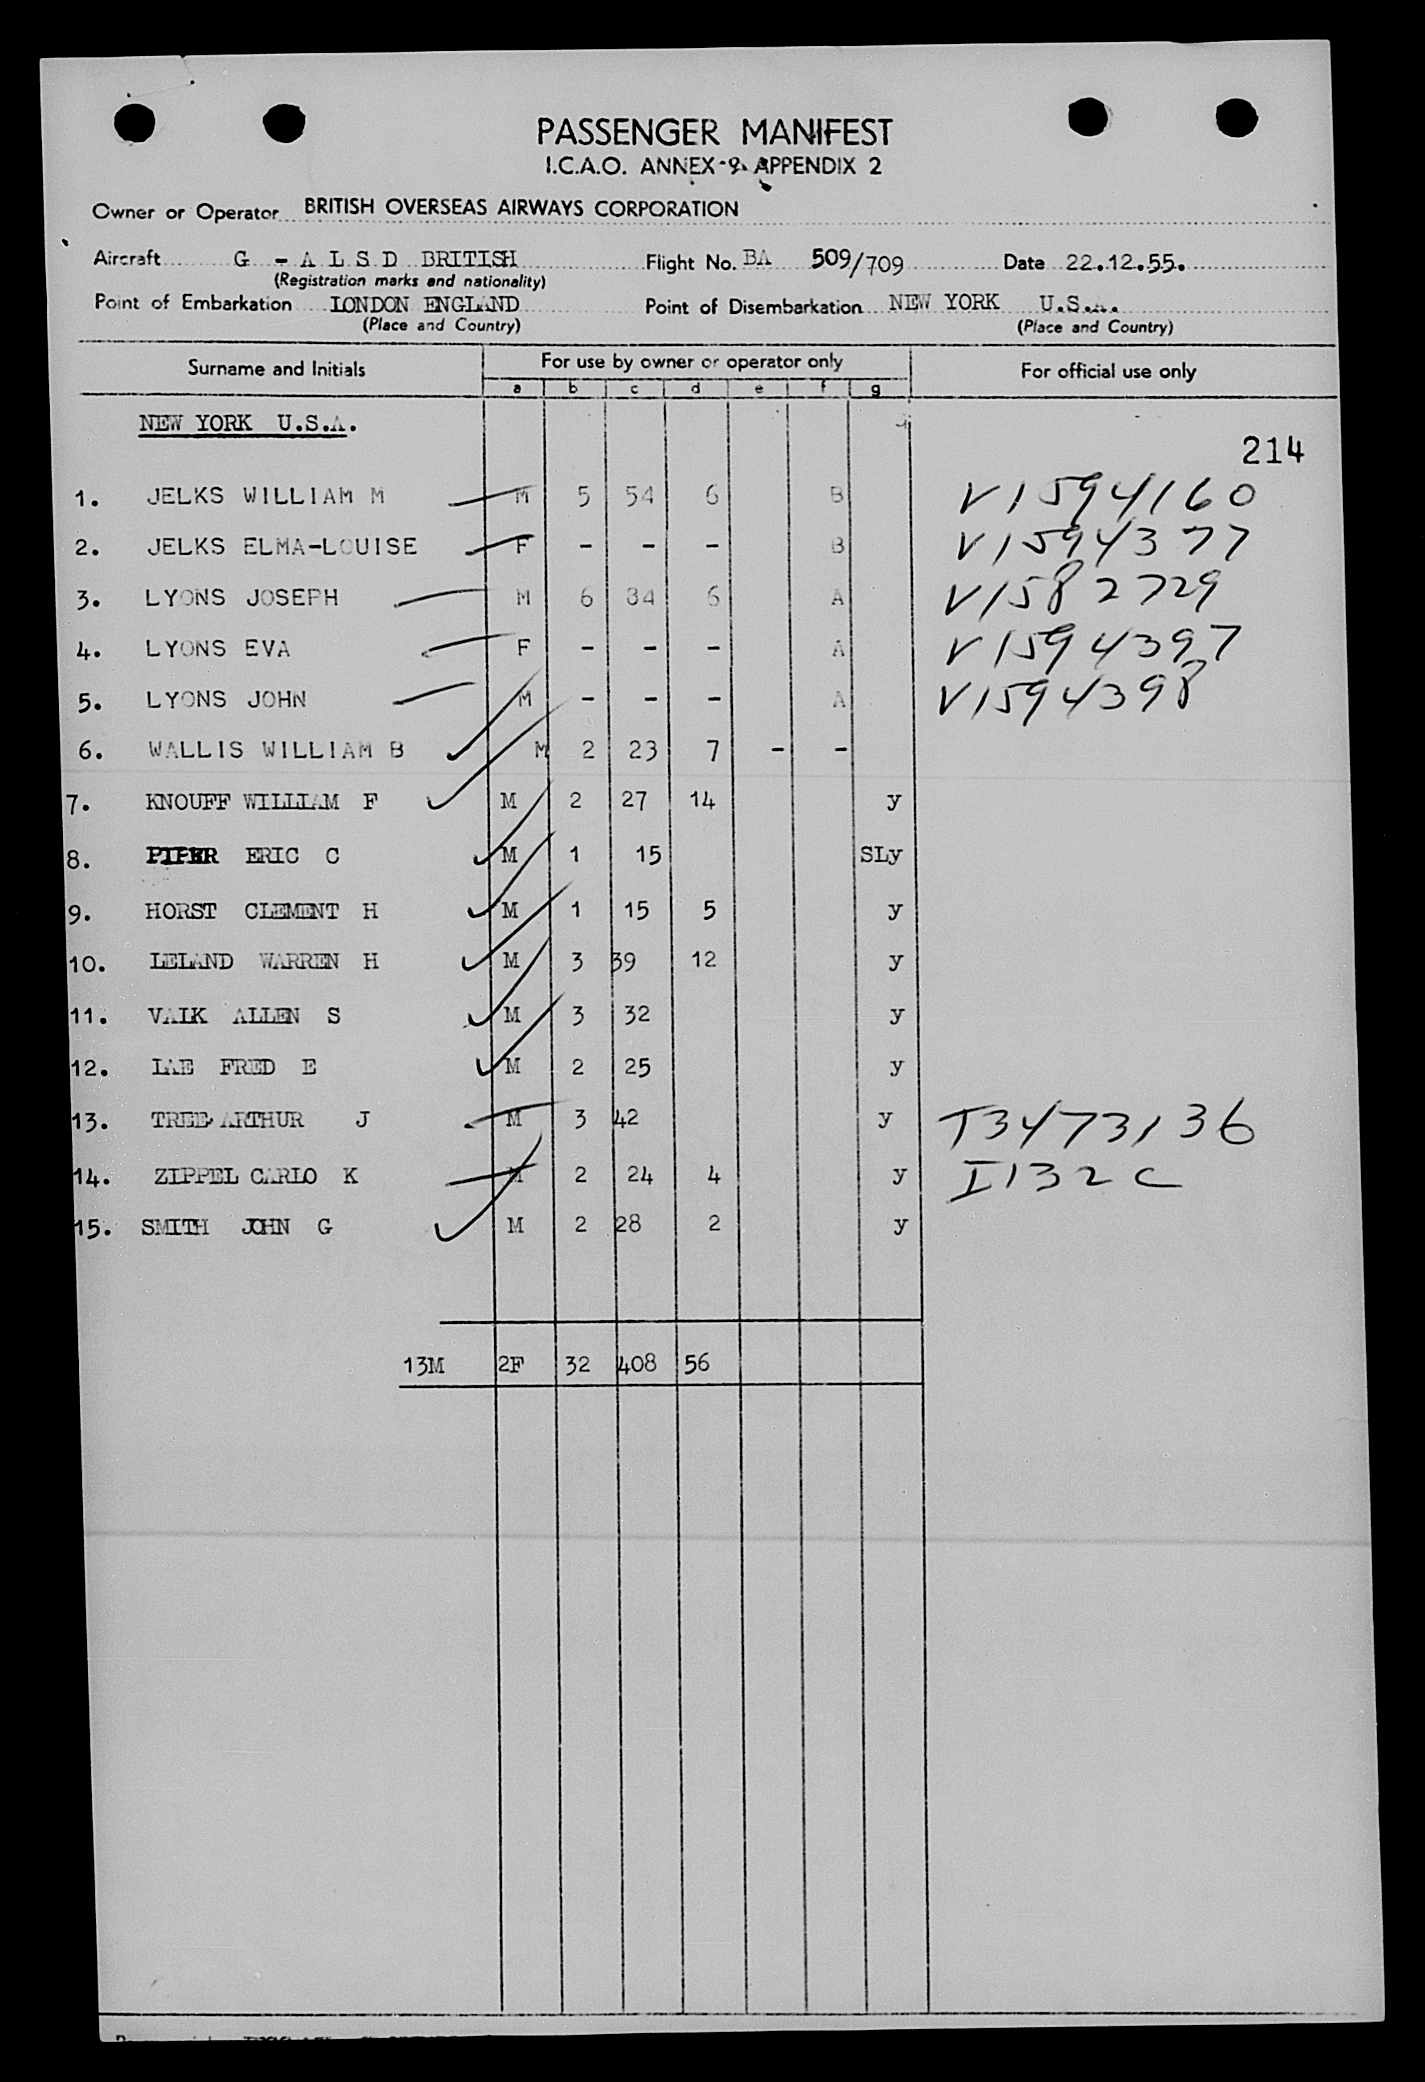 PASSENGER MANIFEST
I.C.A.O. ANNEX 9 APPENDIX 2
Owner or Operator BRITISH OVERSEAS AIRWAYS CORPORATION
Aircraft G - A L S D BRITISH Flight No. BA 509/709 Date 22.12.55.
(Registration marks and nationality)
Point of Embarkation LONDON ENGLAND Point of Disembarkation NEW YORK U.S.A.
(Place and Country) (Place and Country)
Surname and Initials For use by owner or operator only For official use only
a b c d e f g
NEW YORK U.S.A.
214
1. JELKS WILLIAM M M 5 54 6 B V1594160
2. JELKS ELMA-LOUISE F - - - B V1594377
3. LYONS JOSEPH M 6 84 6 A V1582729
4. LYONS EVA F - - - A V1594397
5. LYONS JOHN M - - - A V1594398
6. WALLIS WILLIAM B M 2 23 7 - -
7. KNOUFF WILLIAM F M 2 27 14 y
8. PIPER ERIC C M 1 15 SLy
9. HORST CLEMENT H M 1 15 5 y
10. LELAND WARREN H M 3 39 12 y
11. VAIK ALLEN S M 3 32 y
12. LAE FRED E M 2 25 y
13. TREE ARTHUR J M 3 42 y T3473136
14. ZIPPEL CARLO K M 2 24 4 y I132C
15. SMITH JOHN G M 2 28 2 y
13M 2F 32 408 56